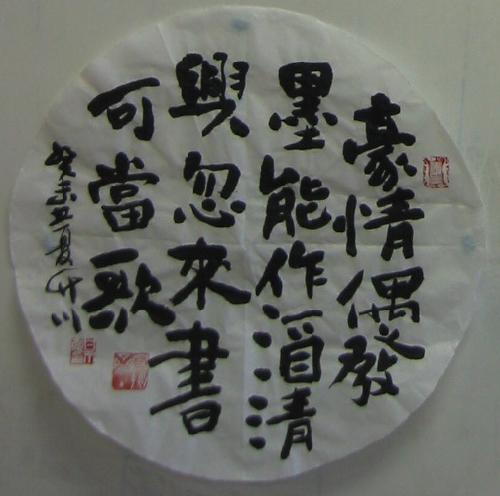 豪情偶發
墨能作酒清
興忽來書
可當歌
癸未夏